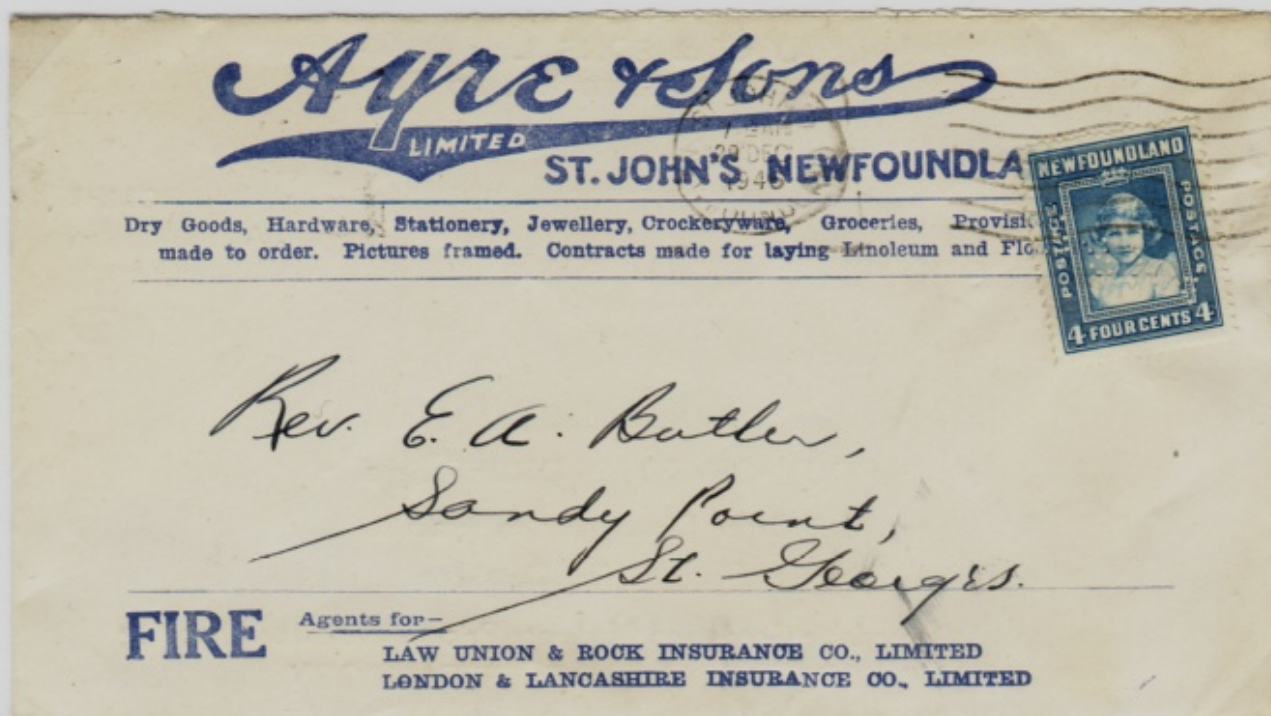 Ayre & Sons
LIMITED
ST. JOHN'S NEWFOUNDLA
ST. JOHN'S
29 DEC
194
NEWFOUNDLAND
POSTAGE
POSTAGE
4 FOUR CENTS 4
Dry Goods, Hardware, Stationery, Jewellery, Crockeryware, Groceries, Provisi
made to order. Pictures framed. Contracts made for laying Linoleum and Flo
Rev. E. A. Butler,
Sandy Point,
St. George's.
FIRE
Agents for—
LAW UNION & ROCK INSURANCE CO., LIMITED
LONDON & LANCASHIRE INSURANCE CO., LIMITED